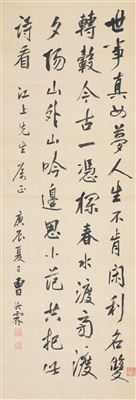 世事真如夢人生不肯閑利名雙
轉轂今古一憑欄春水渡旁渡
夕陽山外山吟邊思小范共把此
詩看
江上先生屬正
庚辰夏日曹汝霖